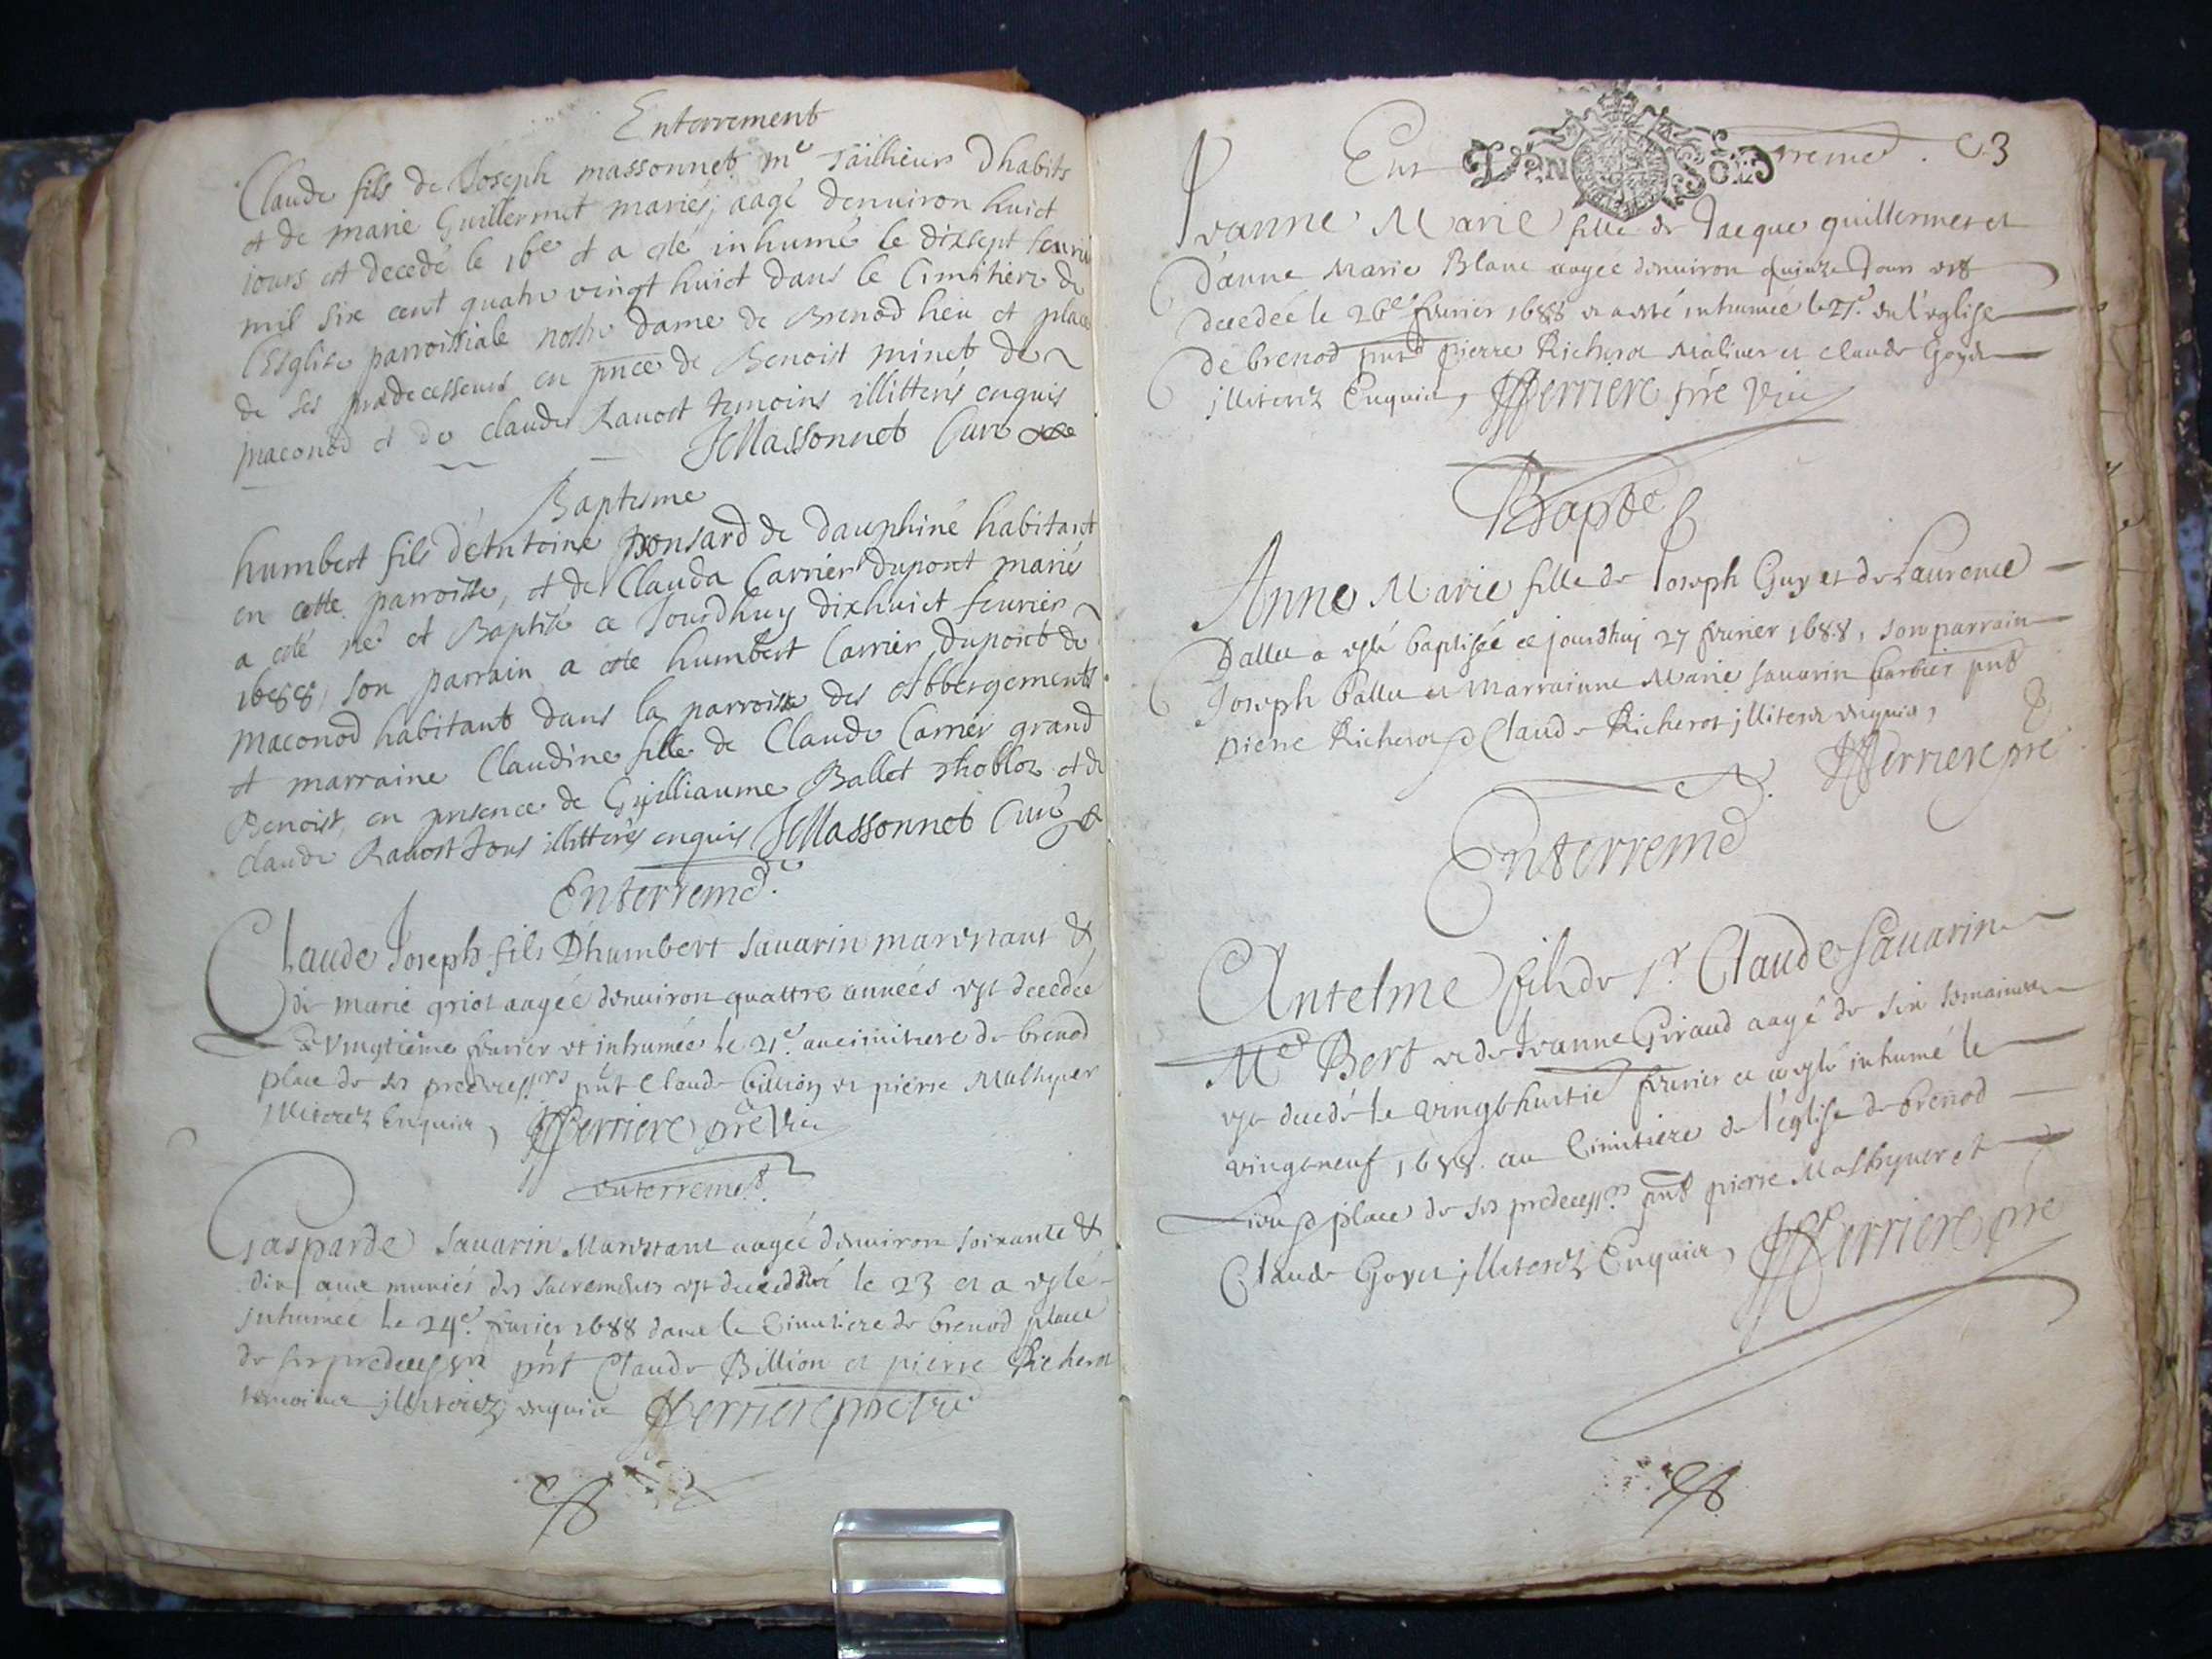 Enterrement
Claude fils de Joseph massonnet me Tailheur dhabits
et de marie Guillermet mariés, aagé denuiron huict
iours est decedé le 16e et a esté inhumé le dixsept feurier
mil six cent quatre vingt huict dans le Cimitiere de
lEsglise parroissiale nostre dame de Brenod lieu et place
de ses prædecesseurs en pnce de Benoist minet de
maconod et de claude Rauost temoins illitterés enquis
Massonnet Curé
Baptisme
humbert fils d'Antoine ponsard de dauphiné habitant
en cette parroisse, et de Clauda Carrier dupont mariés
a esté né et Baptisé ce Jourdhuy dixhuict feurier
1688, son parrain a esté humbert Carrier dupont de
maconod habitant dans la parroisse des Abbergements
et marraine Claudine fille de Claude Carrier grand
Benoist, en presence de Guilliaume Ballet et de
claude Rauost tous illitterés enquis Massonnet Curé
Enterremt.
Claude Joseph fils Dhumbert sauarin &
de marie griot aagée denuiron quattre années est decedée
vingtieme feurier et inhumée le 21e. au cimitiere de brenod
place de ses predecessrs pnt Claude billion et pierre Mathyuer
illiterez Enquis, Ferriere pre Vic
enterremet.
Gasparde sauarin aagée denuiron soixante &
dix ans muniés des sacrements est decedée le 23 et a esté
inhumée le 24e. feurier 1688 dans le Cimitiere de brenod place
de ses predecessrs pnt Claude Billion et pierre Richerot
temoins illiterez enquis Ferriere pre Vic
Ent erremet. 3
VAN SOL
Jeanne Marie fille de Jacque guillermet et
d'anne Marie Blanc aagée denuiron quinze Jours est
decedée le 26e feurier 1688 et a esté inhumée le 27e. en l'eglise
de brenod pnt pierre Richerot et claude Goyet
illiterez Enquis, Ferriere pre Vic
Bapte
Anne Marie fille de Joseph Guy et de Laurence
Pallu a esté baptisée ce jourdhuy 27 feurier 1688, son parrain
Joseph Pallu et Marrainne Marie sauarin pnt
pierre Richerot & Claude Richerot illiterez enquis,
Ferriere pre
Enterremet
Antelme fils de sr. Claude Sauarin
Bert et de Jeanne Giraud aagé de six semaines
est decedé le vingt huitie feurier et a esté inhumé le
vingt neuf 1688. au Cimitiere de l'église de brenod
lieu & place de ses predecessrs. pnt pierre Mathyuer et
Claude Goyet illiterez Enquis, Ferriere pre